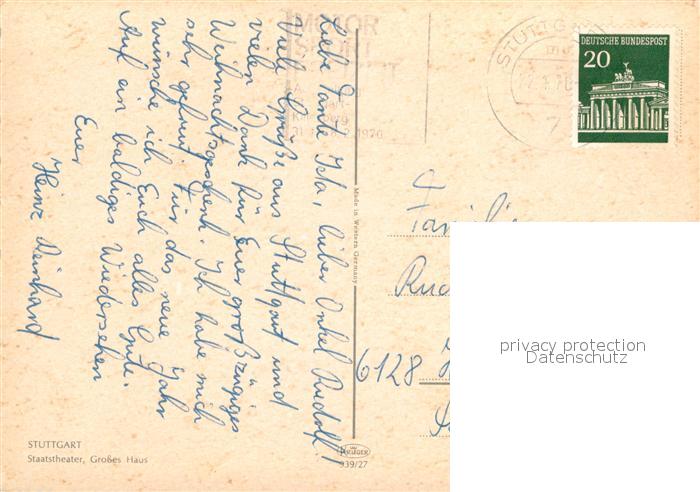 Liebe Tante Ida, lieber Onkel Rudolf!
Viele Grüße aus Stuttgart und
vielen Dank für Euer großzügiges
Weihnachtsgeschenk. Ich habe mich
sehr gefreut. Für das neue Jahr
wünsche ich Euch alles Gute.
Auf ein baldiges Wiedersehen
Euer
Heinz Deinhard
STUTTGART
Staatstheater, Großes Haus
Made in Western Germany
KRÜGER
939/27
MOTOR
SPORT
1970
STUTTGA
DEUTSCHE BUNDESPOST
20
Familie
6128
privacy protection
Datenschutz